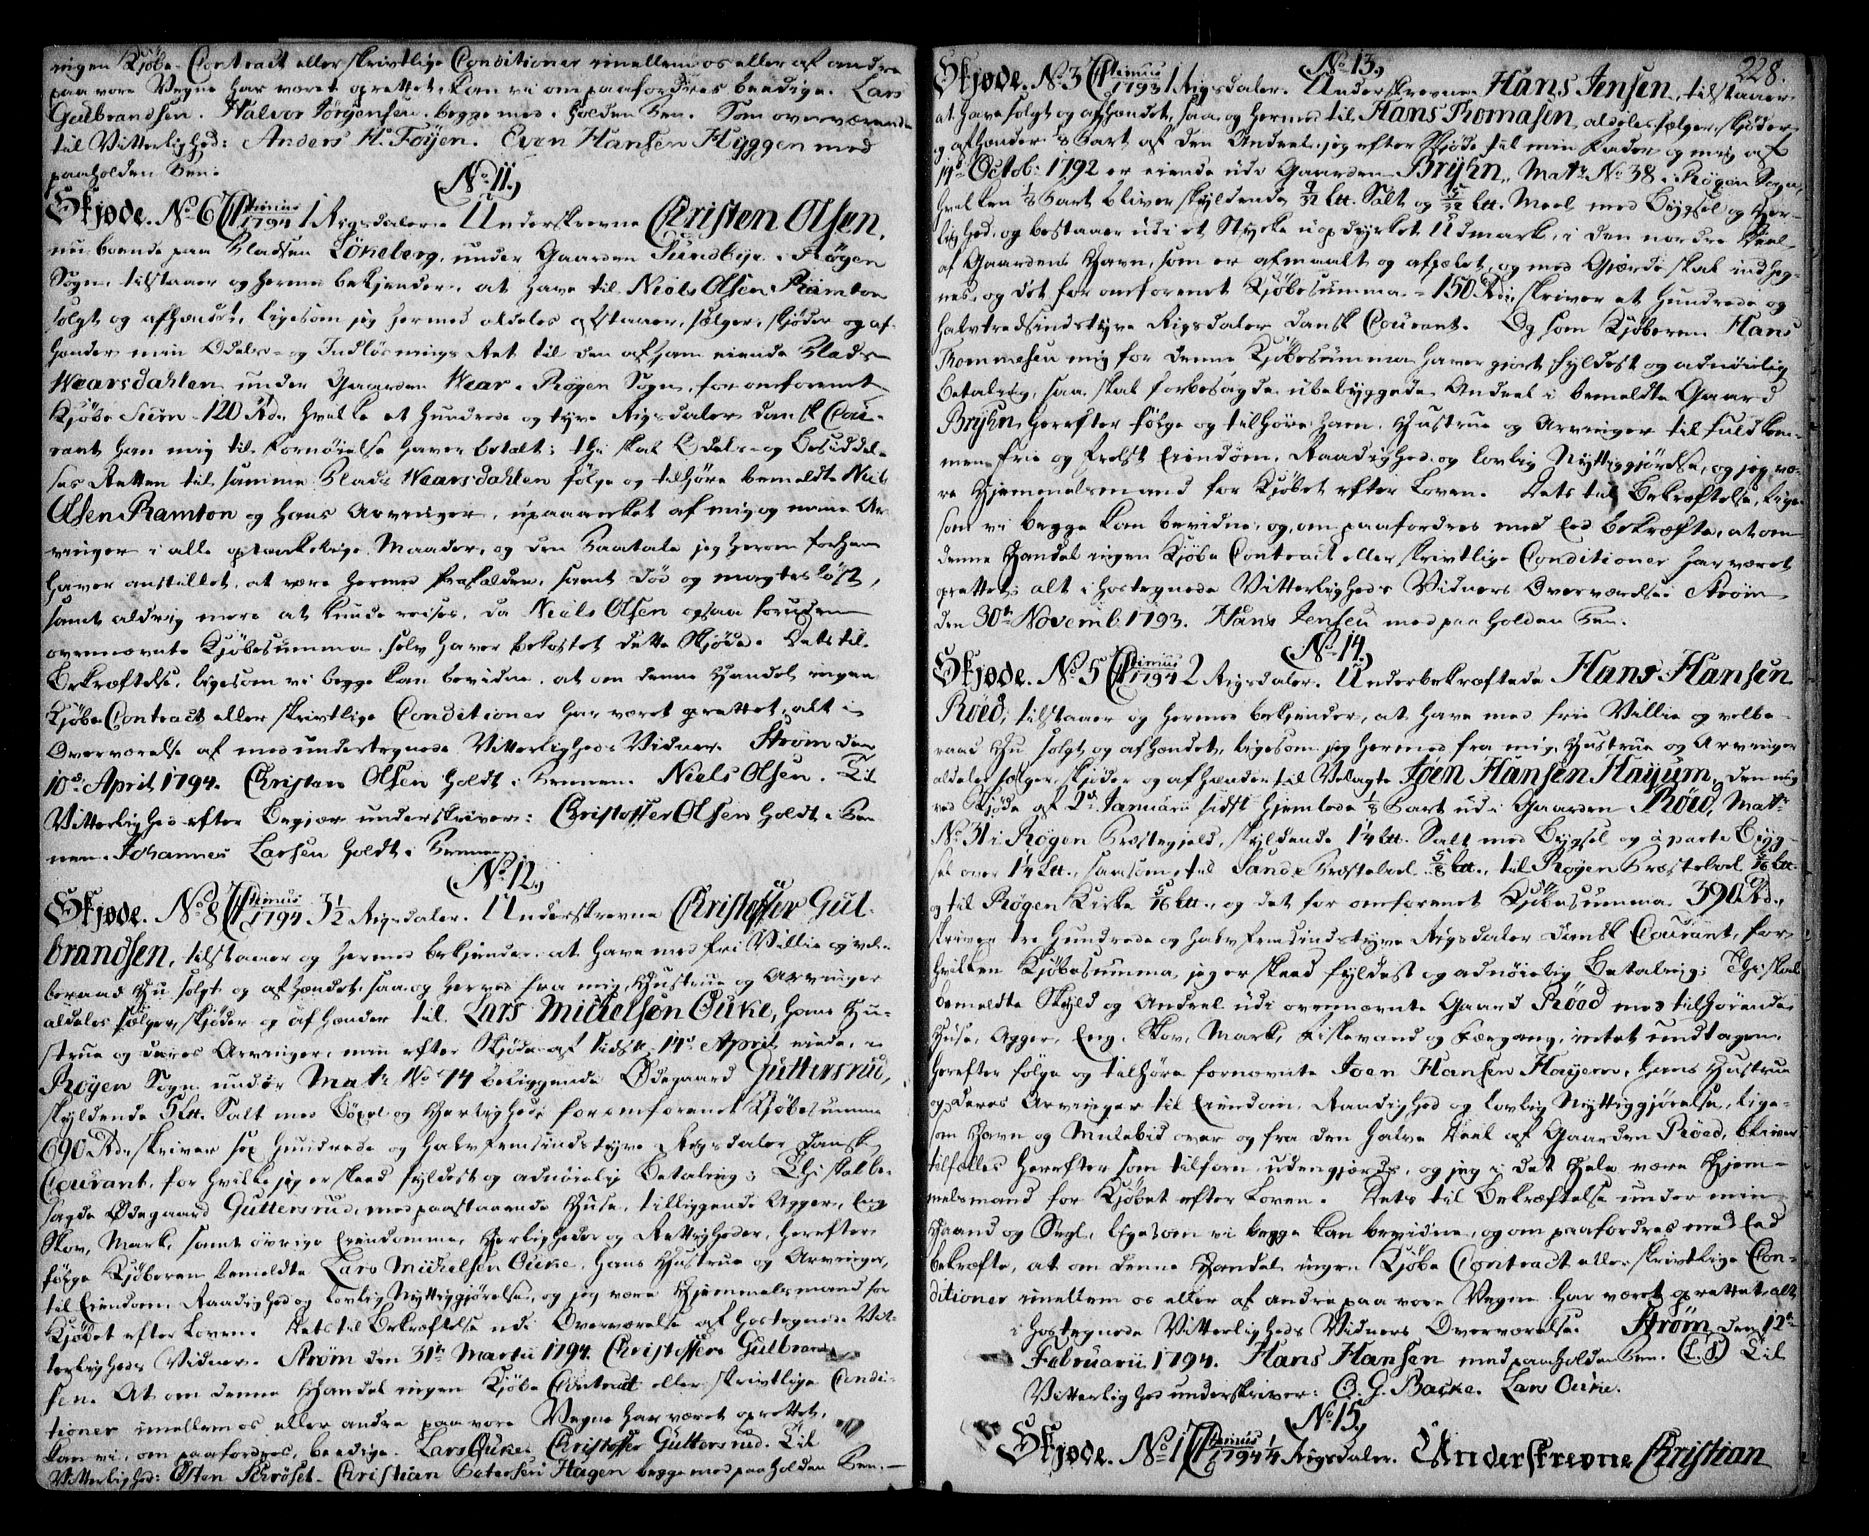 ingen Kjøbe-Contract eller skrivtlige Conditioner imellem os eller af andre
paa vore Vegne har været oprettet, kan vi om paafordres beediges. Lars
Gulbrandsen. Halvor Jörgensen. begge med i holden Pen. Som overværende
til Vitterlighed: Anders H. Föyen. Even Hansen Hyggen med
paaholden Pen.
No 11.
Skjøde. No 6 Primus 1794 1 Rigsdaler. Underskrevne Christen Olsen,
nu boende paa Pladsen Lökeberg, under Gaarden Sundbye i Røgen
Sogn, tilstaaer og hermed bekjender, at have til Niels Olsen Ramton
solgt og afhændet, ligesom jeg hermed aldeles afstaaer, sælger, skjøder og af-
hænder min Odels- og Indløsnings Ret til den af ham eiende Plads
Wearsdahlen under Gaarden Wear i Røgen Sogn, for omforenet
Kjøbe Sum 120 Rd., hvilke et hundrede og tyve Rigsdaler dansk Cou-
rant han mig til Fornøielse haver betalt; thi skal Odels- og Besiddel-
ses Retten til samme Plads Wearsdahlen følge og tilhøre bemeldte Niels
Olsen Ramton og hans Arvinger, upaaanket af mig og mine Ar-
vinger i alle optænkelige Maader, og den Paatale jeg herom forhen
haver anstillet, at være hermed frafalden, samt død og magtesløst,
samt aldrig mere at kunde reises, da Niels Olsen ogsaa foruden
ovennævnte Kjøbesumma selv haver bekostet dette Skjøde. Dets til
Bekræftelse, ligesom vi begge kan bevidne, at om denne Handel ingen
Kjøbe Contract eller skrivtlige Conditioner har været oprettet, alt i
Overværelse af med undertegnede Vitterligheds Vidner. Strøm den
10de April 1794. Christen Olsen holdt i Pennen. Niels Olsen. Til
Vitterlighed efter Begjær underskriver: Christoffer Olsen holdt i Pen-
nen. Johannes Larsen holdt i Pennen.
No 12.
Skjøde. No 8 Primus 1794 3 1/2 Rigsdaler. Underskrevne Christoffer Gul-
brandsen, tilstaaer og hermed bekjender, at have med fri Villie og vel-
beraad Hu solgt og afhændet, saa og herved fra mig, Hustrue og Arvinger
aldeles sælger, skjøder og afhænder til Lars Mickelsen Ouke, hans Hu-
strue og deres Arvinger, min efter Skjøde af sidste 14de April eiende, i
Røyen Sogn under Matr. No 74 beliggende Ødegaard Guttersrud,
skyldende 5 Lt. Salt med Böxel og Herlighed, for omforenet Kjøbesumma
690 Rd., skriver sex hundrede og halvfemsindstyve Rigsdaler dansk
Courant, for hvilke jeg er skeed fyldest og adnøielig Betaling; Thi skal be-
sagde Ødegaard Guttersrud, med paastaaende Huse, tilliggende Agger, Eng
Skov, Mark, samt övrige Eiendomme, Herligheder og Rettigheder, herefter
følge Kjøberen bemeldte Lars Mickelsen Ouke, hans Hustrue og Arvinger,
til Eiendom, Raadighed og lovlig Nyttiggjörelse, og jeg være Hjemmelsmand for
Kjøbet efter Loven. Dets til Bekræftelse udi Overværelse af hostegnede Vit-
terligheds Vidner. Strøm den 31te Martii 1794. Christoffer Gulbrand-
sen. At om denne Handel ingen Kjøbe Contract eller skrivtlige Condi-
tioner imellem os eller andre paa vore Vegne har været oprettet,
kan vi, om paafordres, beedige. Lars Ouke. Christoffer Guttersrud. Til
Vitterlighed: Østen Schröset. Christian Petersen Hagen begge med paaholden Pen.
228.
No 13.
Skjøde. No 3 Primus 1793 1 Rigsdaler. Underskrevne Hans Jensen, tilstaaer
at have solgt og afhændet, saa og hermed til Hans Thomasen aldeles sælger, skjøder
og afhænder 1/8 Part af den Andeel, jeg efter Skjøde til min Fader og mig af
19de Octob. 1792 er eiende udi Gaarden Bryhn, Matr. No 38 i Røgen Sogn,
hvilken 1/8 Part bliver skyldende 9/32 Lt. Salt og 5/32 Lt. Meel med Bygsel og Her-
lighed, og bestaaer udi et Stykke uopdyrket Udmark, i den nordre Deel
af Gaardens Havn, som er afmaalt og afpælet, og med Gjærde skal indheg-
nes, og det for omforenet Kjøbesumma 150 Rd., skriver et hundrede og
halvtredsindstyve Rigsdaler dansk Courant. Og som Kjøberen Hans
Thommesen mig for denne Kjøbesumma haver gjort fyldest og adnøielig
Betaling, saa skal forbesagde ubebyggede Andeel i bemeldte Gaard
Bryhn herefter følge og tilhøre ham, Hustrue og Arvinger til fuldkom-
men frie og frelst Eiendom, Raadighed og lovlig Nyttiggjörelse, og jeg væ-
re Hjemmelsmand for Kjøbet efter Loven. Dets til Bekræftelse, lige-
som vi begge kan bevidne, og, om paafordres med Eed bekræfte, at om
denne Handel ingen Kjøbe Contract eller skrivtlige Conditioner har været
oprettet; alt i hostegnede Vitterligheds Vidners Overværelse. Strøm
den 30te Novemb. 1793. Hans Jensen med paaholden Pen.
No 14.
Skjøde. No 5 Primus 1794 2 Rigsdaler. Underbekræftede Hans Hansen
Röed, tilstaaer og hermed bekjender, at have med frie Villie og velbe-
raad Hu solgt og afhændet, ligesom jeg hermed fra mig, Hustrue og Arvinger
aldeles sælger, skjøder og afhænder til Velagte Joen Hansen Hayum, den mig
ved Skjøde af 2de Januarii sidst hjemlede 1/8 Part udi Gaarden Röed, Matr.
No 31 i Røgen Præstegjeld, skyldende 1 1/4 Lt. Salt med Bygsel og àparte Byg-
sel over 1 1/4 Lt., saasom, til Sande Præstebord 5/8 Lt., til Røyen Præstebord 5/16 Lt.
og til Røgen Kirke 5/16 Lt., og det for omforenet Kjøbesumma 390 Rd.,
skriver tre hundrede og halvfemsindstyve Rigsdaler dansk Courant, for
hvilken Kjøbesumma, jeg er skeed fyldest og adnøielig Betaling; Thi skal
bemeldte Skyld og Andeel udi ovennævnte Gaard Röed med tilhørende
Huse, Agger, Eng, Skov, Mark, Fiskevand og Fægang, intet undtagen,
herefter følge og tilhøre fornævnte Joen Hansen Hayem, hans Hustrue
og deres Arvinger til Eiendom, Raadighed og lovlig Nyttiggjörelse, lige-
som Havn og Mulebid over og fra den halve Deel af Gaarden Röed, bliver
tilfælles herefter som tilforn udengjærds, og jeg i det Hele være Hjem-
melsmand for Kjøbet efter Loven. Dets til Bekræftelse under min
Haand og Segl, ligesom vi begge kan bevidne, og om paafordres med Eed
bekræfte, at om denne Handel ingen Kjøbe Contract eller skrivtlige Con-
ditioner imellem os eller af andre paa vore Vegne har været oprettet, alt
i hostegnede Vitterligheds Vidners Overværelse. Strøm den 12te
Februarii 1794. Hans Hansen med paaholden Pen. (L.S.) Til
Vitterlighed underskriver: O. G. Backe. Lars Ouke.
No 15.
Skjøde. No 1 Primus 1794 1/4 Rigsdaler. Underskrevne Christian